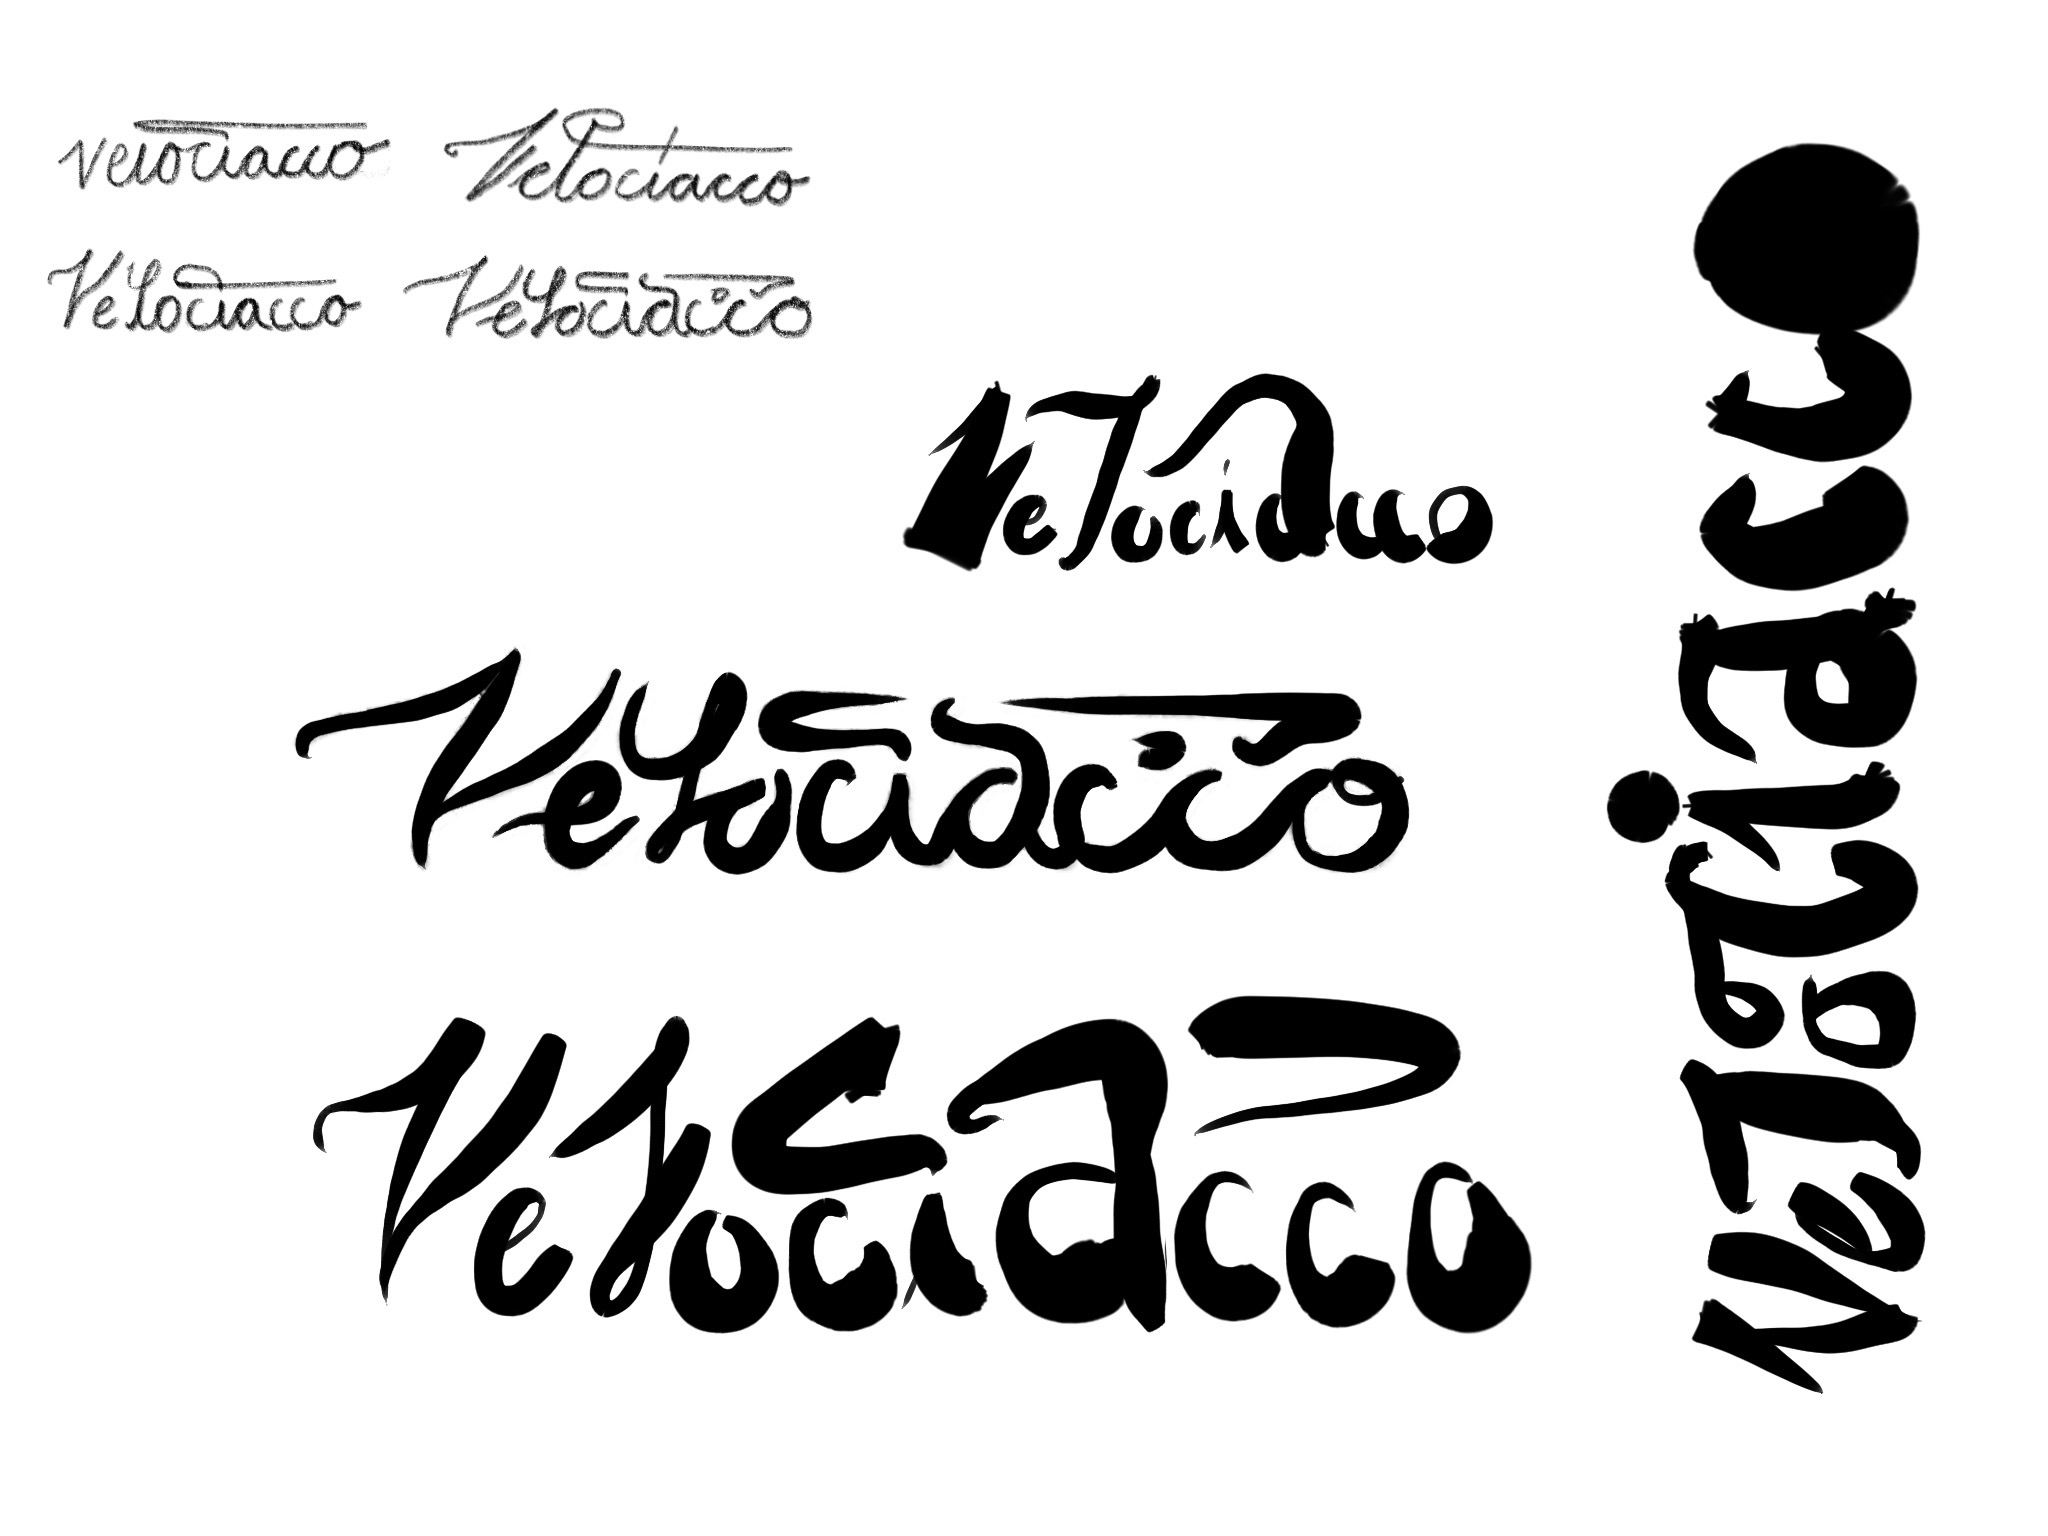 velociacco Velociacco
Velociacco Velociacco
Velociacco
Velociacco
Velociacco
Velociacco